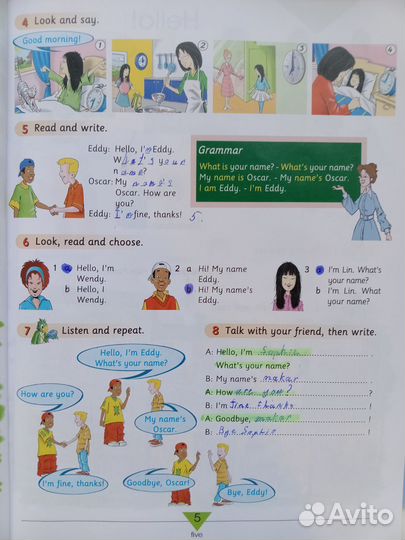 Hello!
4 Look and say.
Good morning!
1
2
3
4
5 Read and write.
Eddy: Hello, I'm Eddy.
What's your
name?
Oscar: My name's
Oscar. How are
you?
Eddy: I'm fine, thanks! 5.
Grammar
What is your name? - What's your name?
My name is Oscar. - My name's Oscar.
I am Eddy. - I'm Eddy.
6 Look, read and choose.
1 a Hello, I'm
Wendy.
b Hello, I
Wendy.
2 a Hi! My name
Eddy.
b Hi! My name's
Eddy.
3 a I'm Lin. What's
your name?
b I'm Lin. What
your name?
7 Listen and repeat.
Hello, I'm Eddy.
What's your name?
How are you?
My name's
Oscar.
I'm fine, thanks!
Goodbye, Oscar!
Bye, Eddy!
8 Talk with your friend, then write.
A: Hello, I'm
What's your name?
B: My name's makar
A: How are you? ?
B: I'm fine thanks !
A: Goodbye, makar !
B: Bye !
5
five
Avito